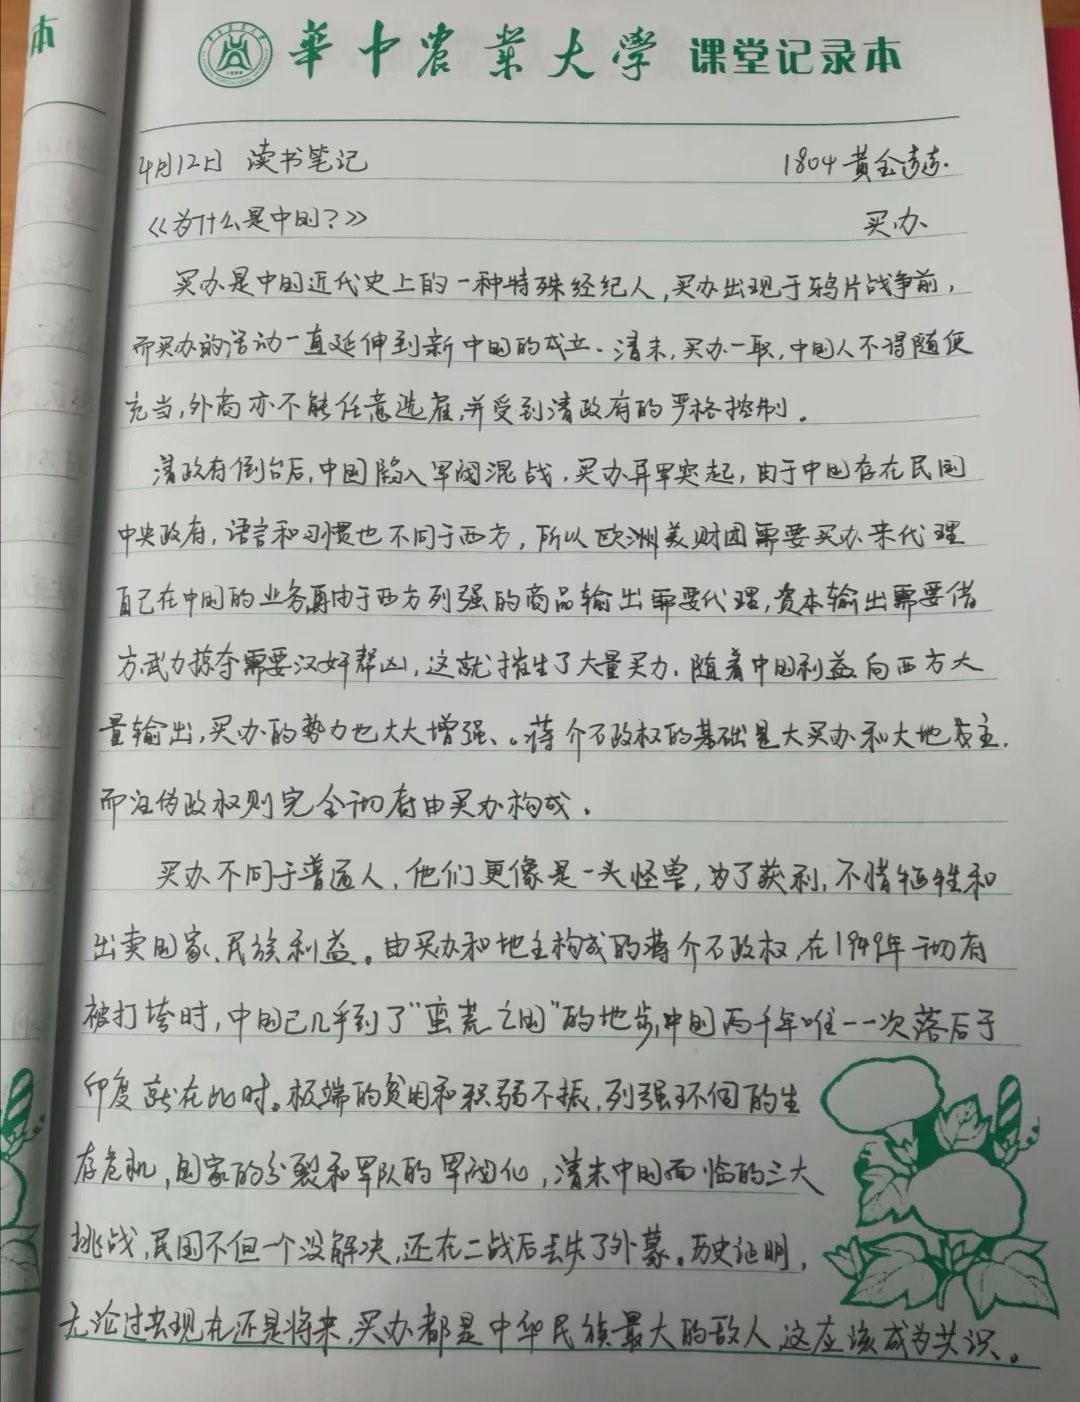 本
華中农業大学 课堂记录本
4月12日 读书笔记 1804 黄全
《为什么是中国?》 买办
买办是中国近代史上的一种特殊经纪人,买办出现于鸦片战争前,
而买办的活动一直延伸到新中国的成立.清末,买办一职,中国人不得随便
充当,外商亦不能任意选雇,并受到清政府的严格控制。
清政府倒台后,中国陷入军阀混战,买办异军突起,由于中国存在民国
中央政府,语言和习惯也不同于西方,所以欧洲美财团需要买办来代理
自己在中国的业务再由于西方列强的商品输出需要代理,资本输出需要借
方,武力掠夺需要汉奸帮凶,这就催生了大量买力.随着中国利益向西方大
量输出,买办的势力也大大增强、。蒋介石政权的基础是大买办和大地主,
而汪伪政权则完全由买办构成.
买办不同于普通人,他们更像是一头怪兽,为了获利,不惜牺牲和
出卖国家、民族利益。由买办和地主构成的蒋介石政权,在1949年
被打垮时,中国已几乎到了"蛮荒之国"的地步,中国两千年唯一一次落后于
印度就在此时。极端的贫困和积弱不振,列强环伺的生
存危机,国家的分裂和军队的军阀化,清末中国面临的三大
挑战,民国不但一个没解决,还在二战后丢失了外蒙。历史证明,
无论过去现在还是将来,买办都是中华民族最大的敌人,这应该成为共识。